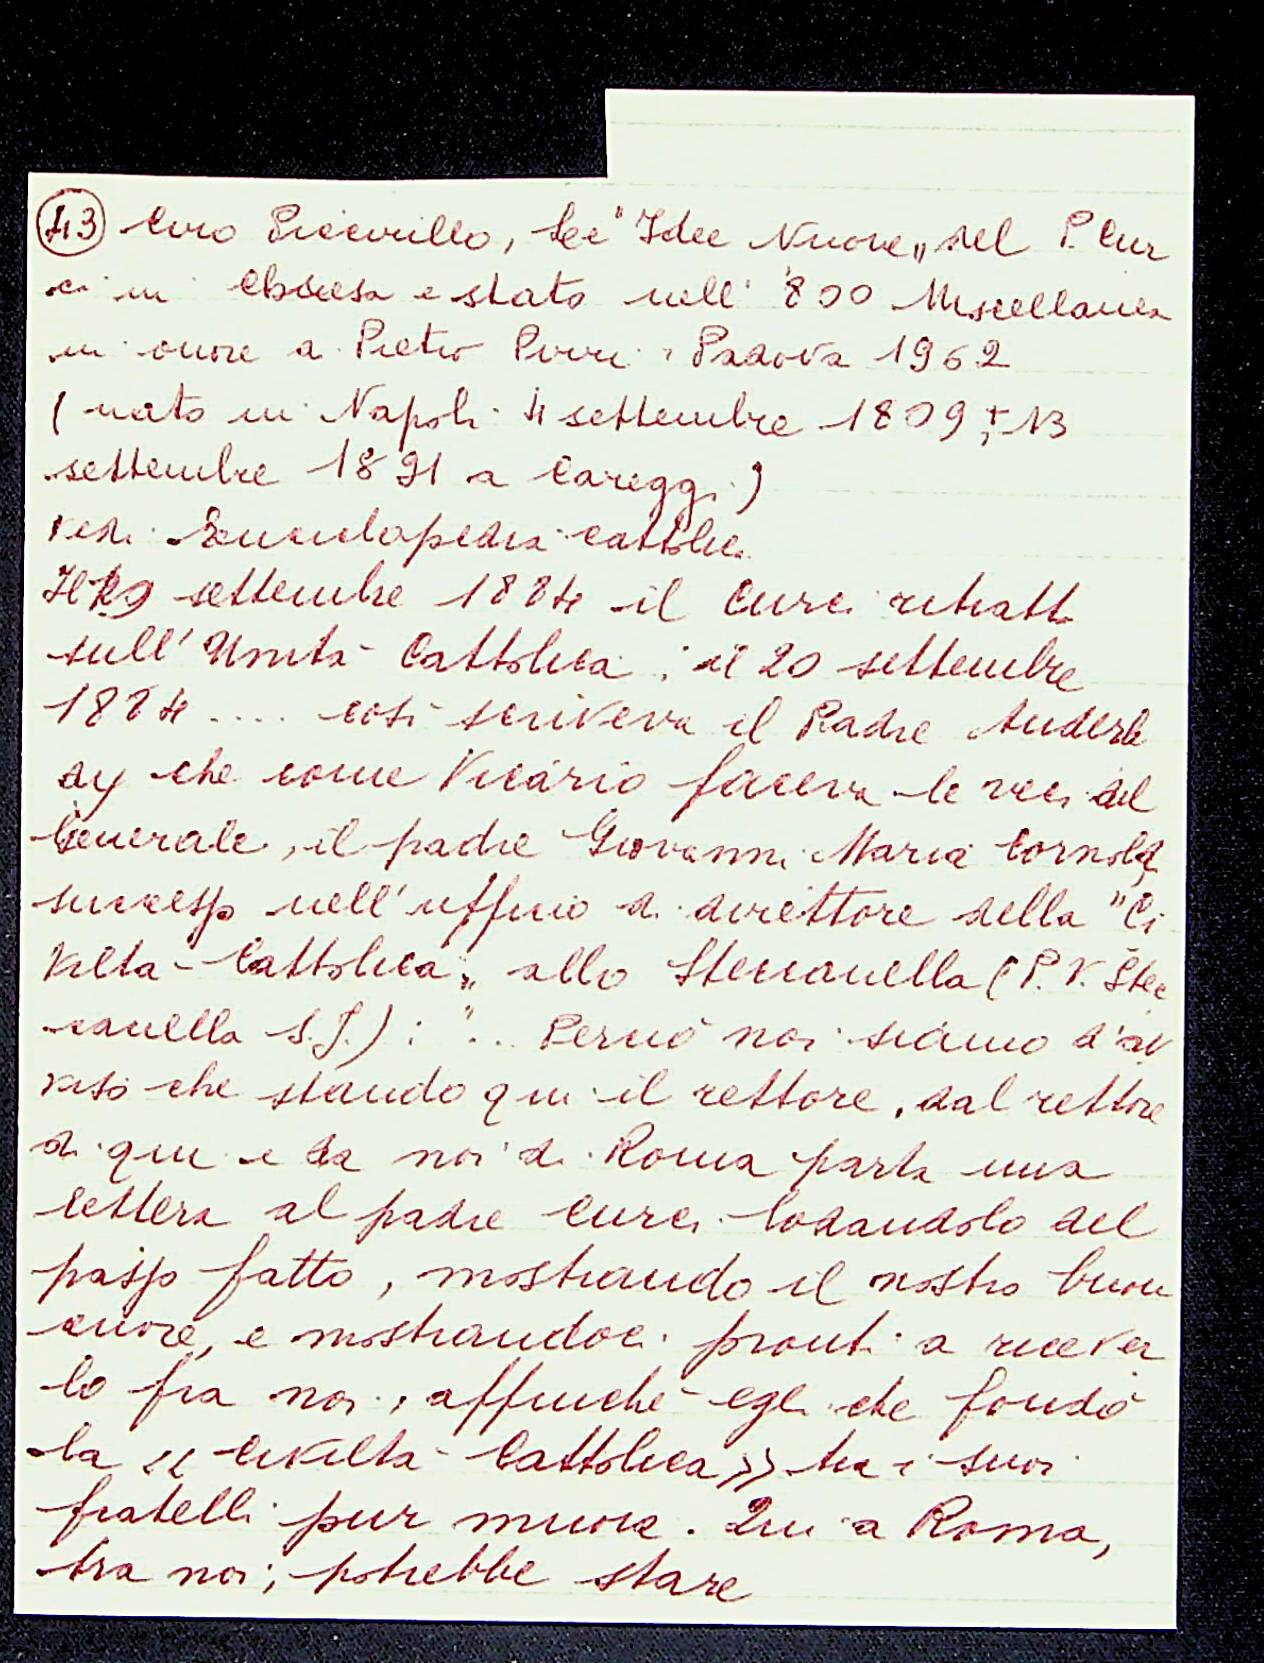 43 Ciro Piccirillo, Le "Idee Nuove" del P. Cur
ci in Chiesa e stato nell' '800 Miscellanea
in onore a Pietro Pirri - Padova 1962
(nato in Napoli 4 settembre 1809 + 13
settembre 1891 a Careggi)
vedi Enciclopedia cattolica
Il 29 settembre 1884 il Curci ritrattò
sull'Unità Cattolica; il 20 settembre
1884 .... così scriveva il Padre Anderle
dy che come Vicario faceva le veci del
Generale, il padre Giovanni Maria Cornoldi
successo nell'ufficio di direttore della "Ci
viltà Cattolica" allo Steccanella (P. V. Stec
canella S.J.): "... Perciò noi siamo d'av
viso che stando qui il rettore, dal rettore
di qui e da noi di Roma parta una
lettera al padre Curci lodandolo del
passo fatto, mostrando il nostro buon
cuore, e mostrandoci pronti a ricever
lo fra noi, affinché egli che fondò
la «Civiltà Cattolica» tra i suoi
fratelli pur muoia. Qui a Roma,
tra noi, potrebbe stare